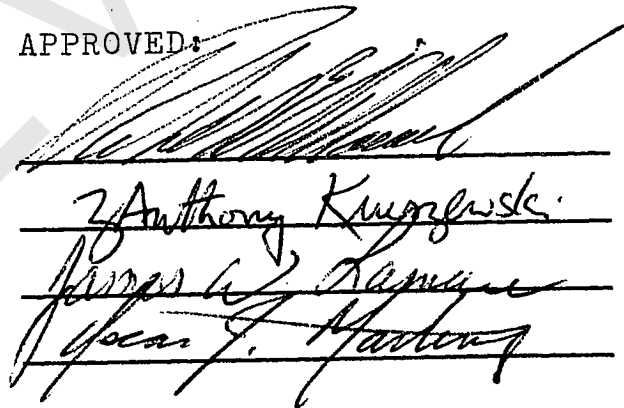 APPROVED:
Z Anthony Kruszewski
James W. Lamare
Oscar J. Martinez